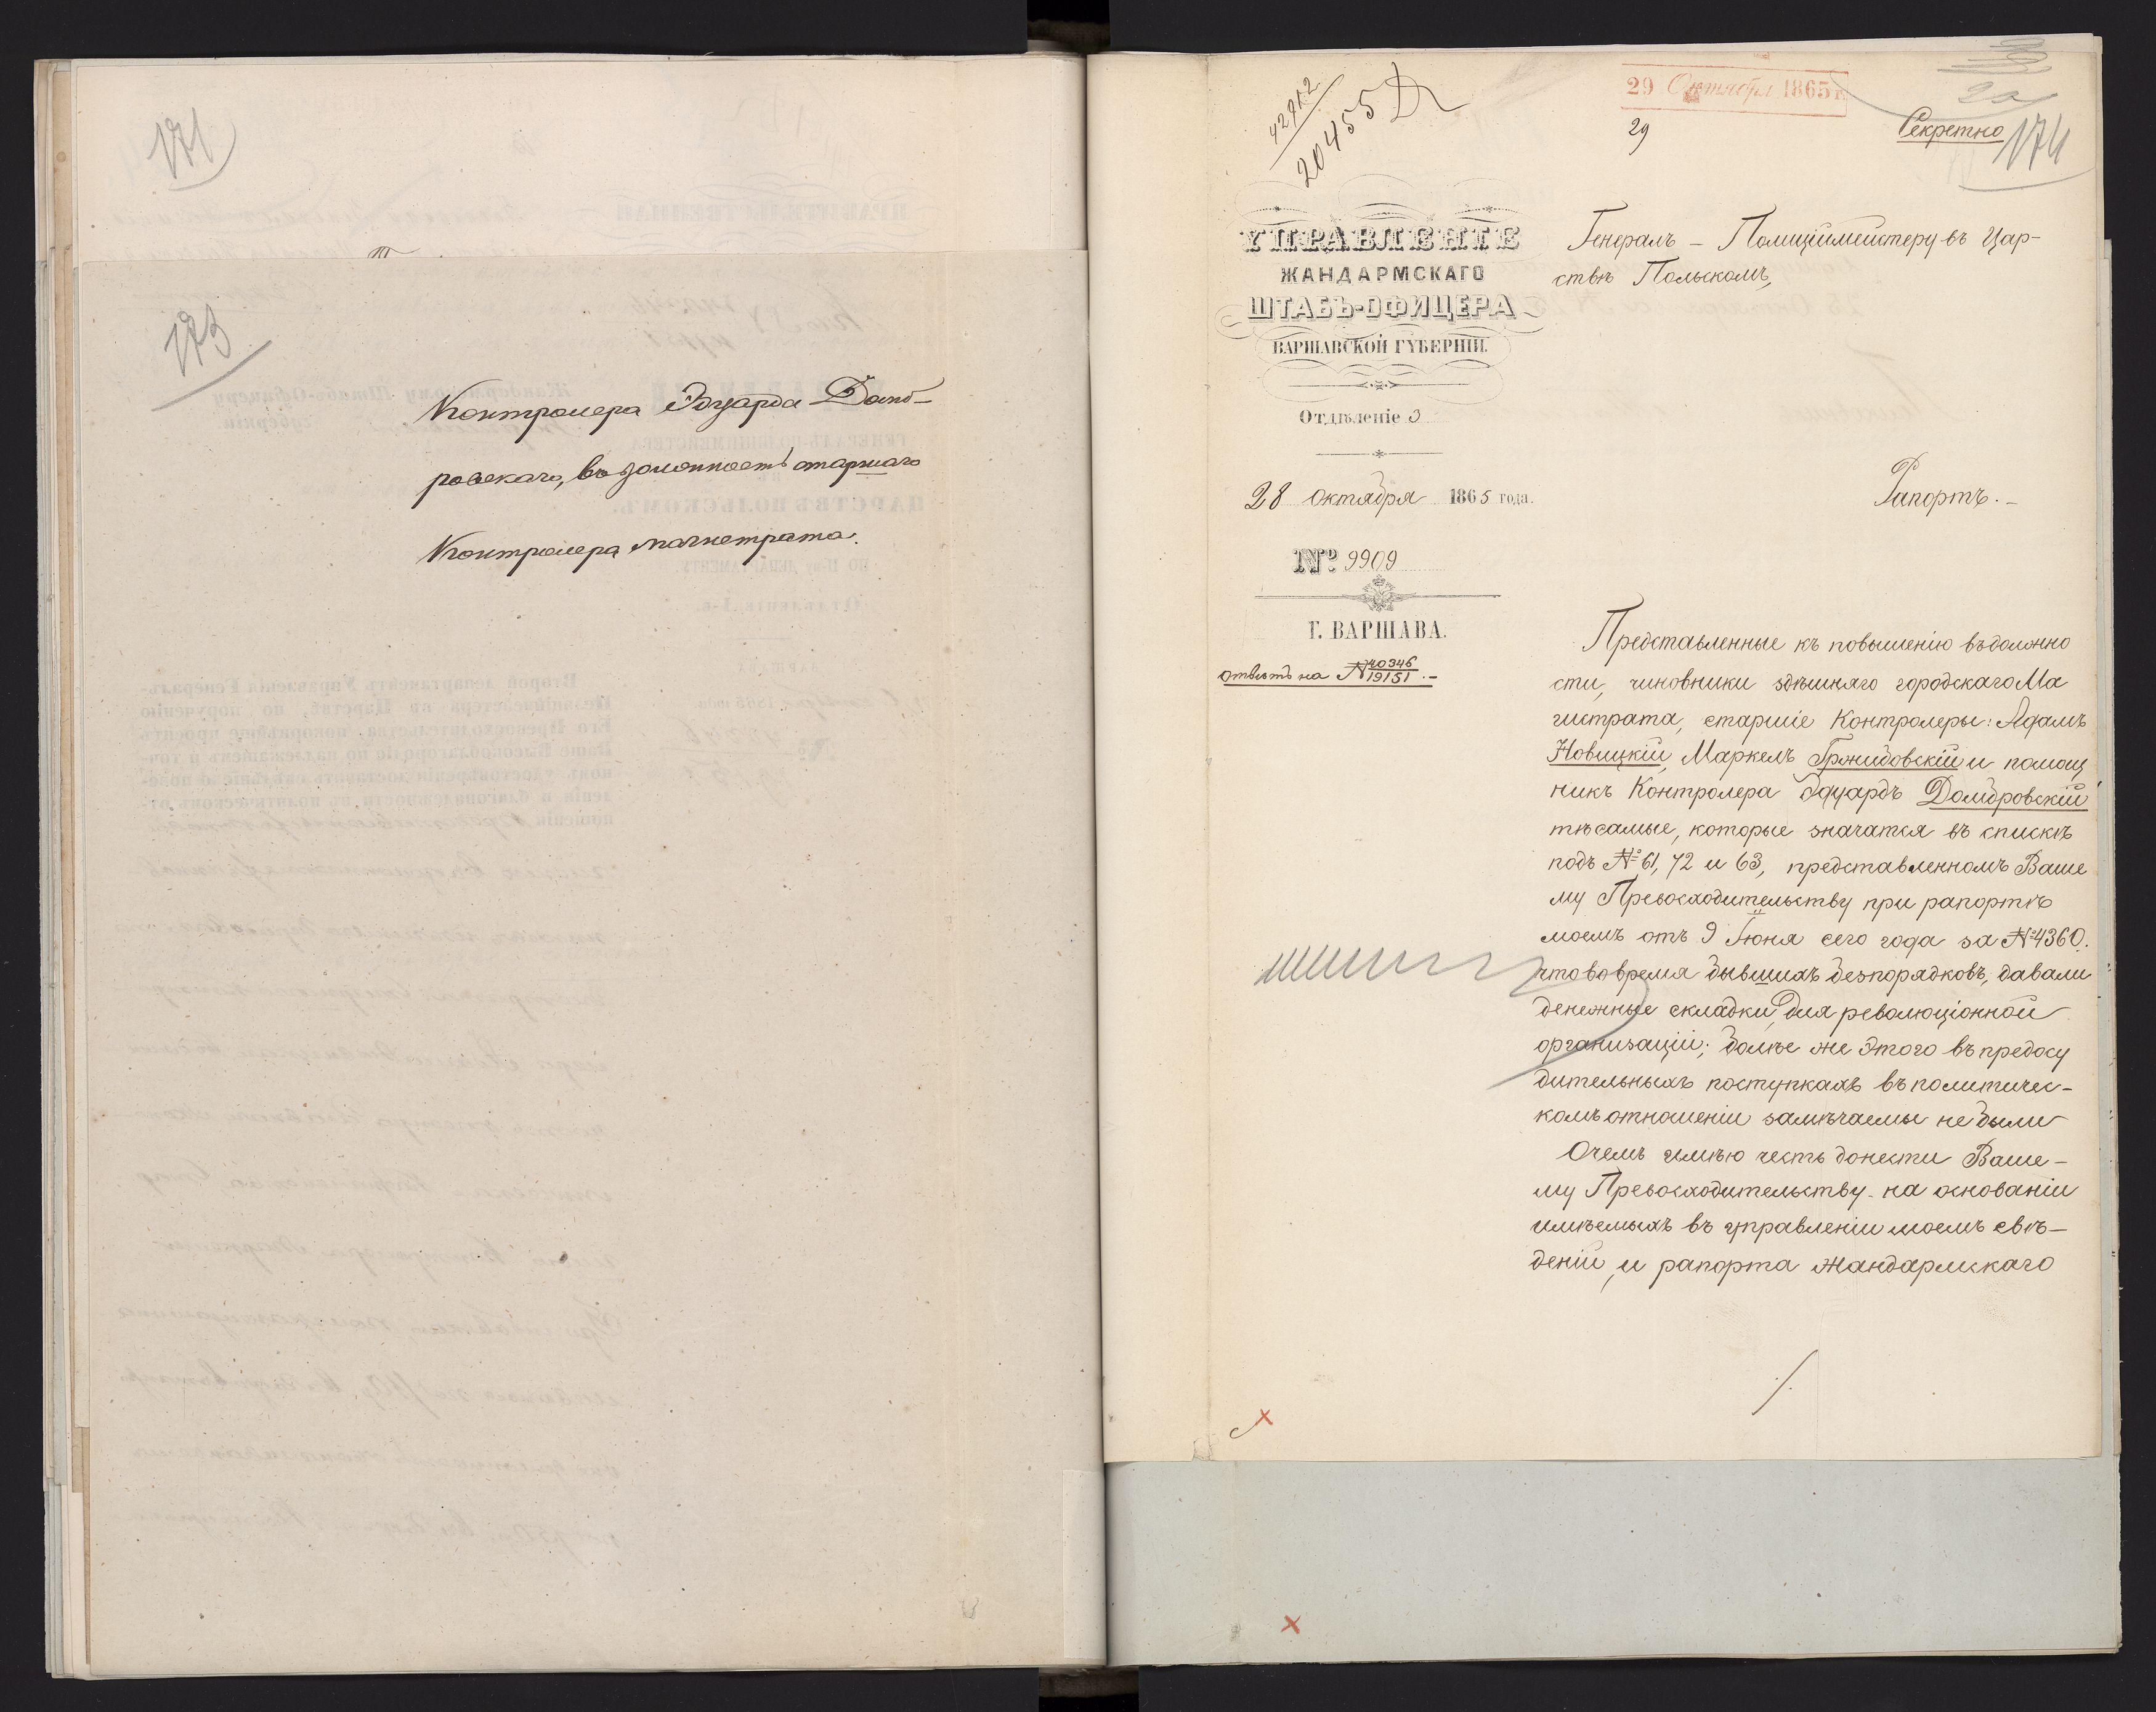 171
173
Контролера Эдуарда Домб-
ровскаго, въ должность старшаго
Контролера магистрата.
42912
20455
29 Октября 1865 г.
29
2а
Секретно
174
УПРАВЛЕНІЕ
ЖАНДАРМСКАГО
ШТАБЪ-ОФИЦЕРА
ВАРШАВСКОЙ ГУБЕРНІИ.
Отдѣленіе 3
28 октября 1865 года.
№ 9909
Г. ВАРШАВА.
отвѣтъ на № 40346
19151.-
Генералъ - Полиціймейстеру въ Цар-
ствѣ Польскомъ,
Рапортъ.-
Представленные къ повышенію въ должно
сти, чиновники здѣшняго городскаго Ма
гистрата, старшіе Контролеры: Адамъ
Новицкій, Маркелъ Гржидовскій и помощ
никъ Контролера Эдуардъ Домбровскій
тѣ самые, которые значатся въ спискѣ
подъ № 61, 72 и 63, представленномъ Ваше
му Превосходительству при рапортѣ
моемъ отъ 9 Іюня сего года за № 4360.
что во время бывшихъ безпорядковъ, давали
денежные складки для революціонной
организаціи; болѣе же этого въ предосу
дительныхъ поступкахъ въ политичес-
комъ отношеніи замѣчаемы не были
О чемъ имѣю честь донести Ваше-
му Превосходительству на основаніи
имѣемыхъ въ управленіи моемъ свѣ-
деній, и рапорта Жандармскаго
./.